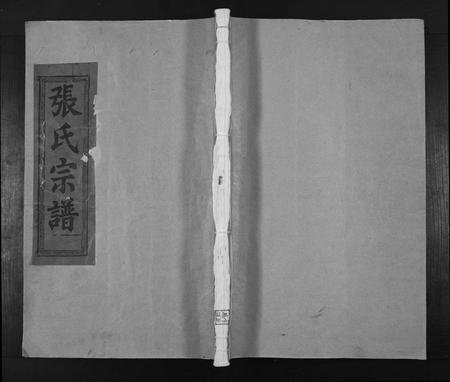 張氏宗譜